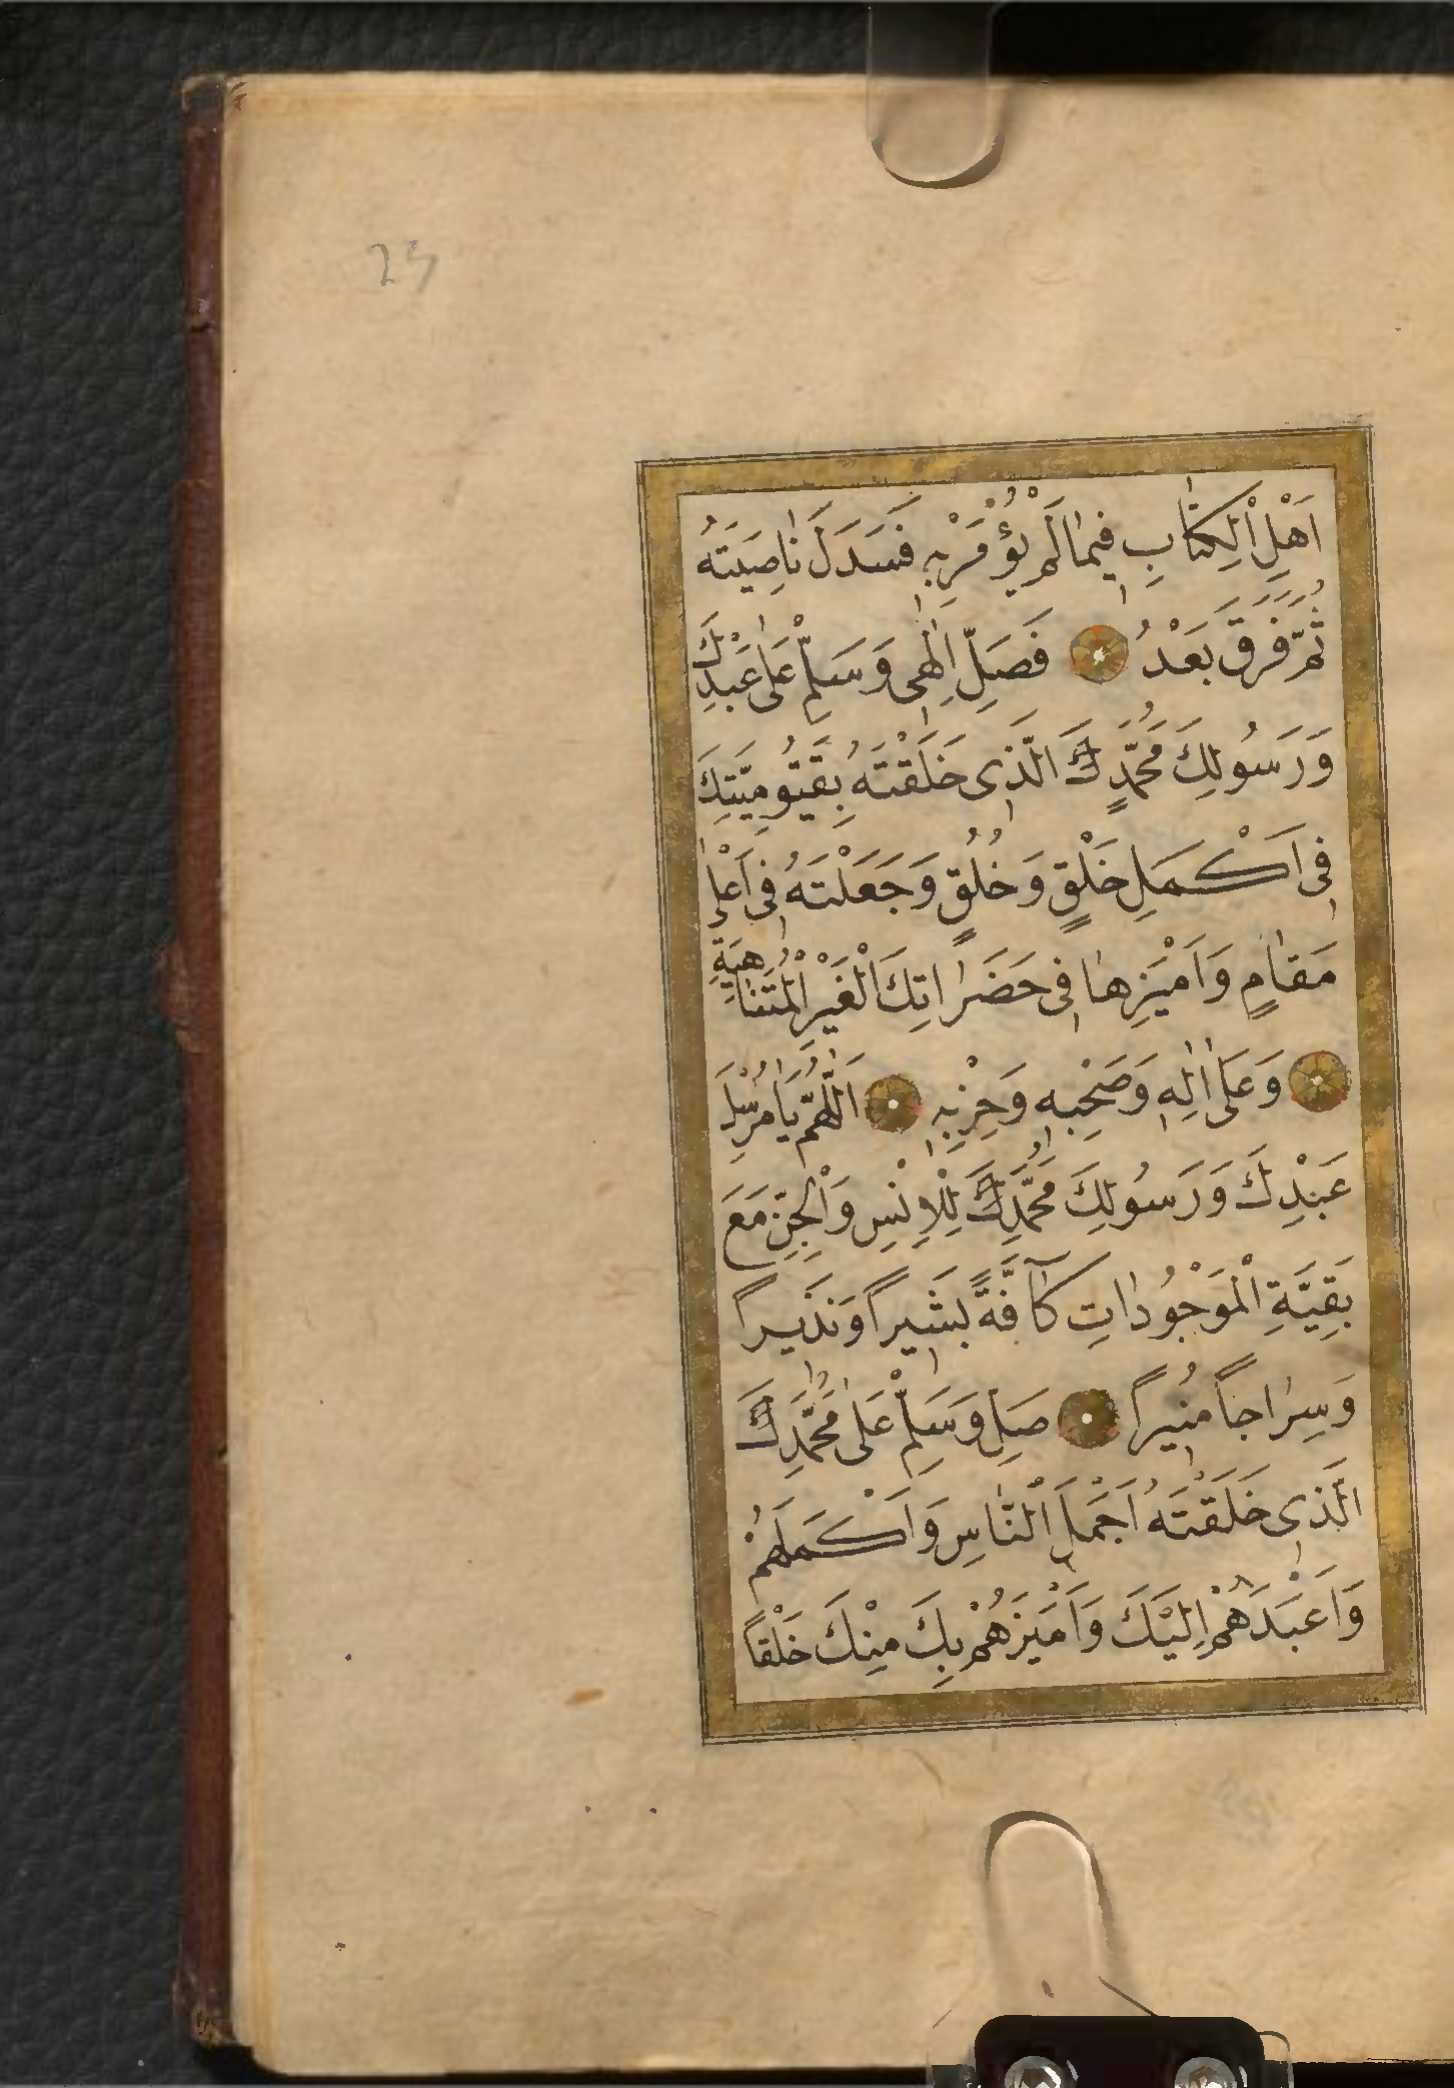 25
اَهْلِ الْكِتَابِ فِيمَا لَمْ يُؤْمَرْ بِهِ فَسَدَلَ نَاصِيَتَهُ
ثُمَّ فَرَقَ بَعْدُ فَصَلِّ اِلٰهِى وَسَلِّمْ عَلٰى عَبْدِكَ
وَرَسُولِكَ مُحَمَّدٍكَ الَّذِى خَلَقْتَهُ بِقَيُّومِيَّتِكَ
فِى اَكْمَلِ خَلْقٍ وَخُلُقٍ وَجَعَلْتَهُ فِى اَعْلٰى
مَقَامٍ وَاَمْيَزِهَا فِى حَضَرَاتِكَ الْغَيْرِ الْمُتَنَاهِيَةِ
وَعَلٰى اٰلِهِ وَصَحْبِهِ وَحِزْبِهِ اَللّٰهُمَّ يَامُرْسِلَ
عَبْدِكَ وَرَسُولِكَ مُحَمَّدِكَ لِلْاِنْسِ وَالْجِنِّ مَعَ
بَقِيَّةِ الْمَوْجُودَاتِ كَآفَّةً بَشِيراً وَنَذِيراً
وَسِرَاجاً مُنِيراً صَلِ وَسَلِّمْ عَلٰى مُحَمَّدِكَ
الَّذِى خَلَقْتَهُ اَجْمَلَ النَّاسِ وَاَكْمَلَهُمْ
وَاَعْبَدَهُمْ اِلَيْكَ وَاَمْيَزَهُمْ بِكَ مِنْكَ خَلْقاً